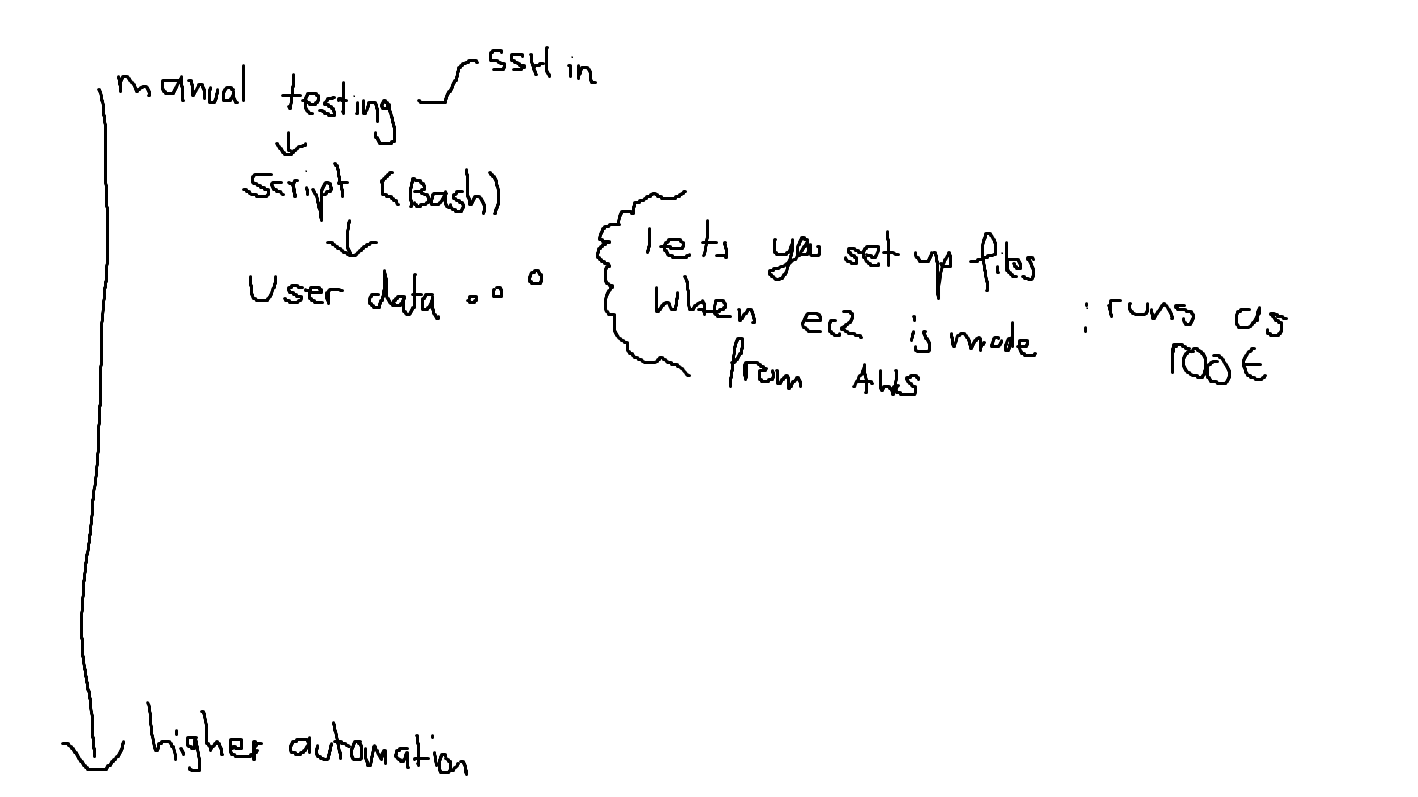 manual testing
SSH in
script (Bash)
User data
lets you set up files
when ec2 is made
from AWS
: runs as
root
higher automation